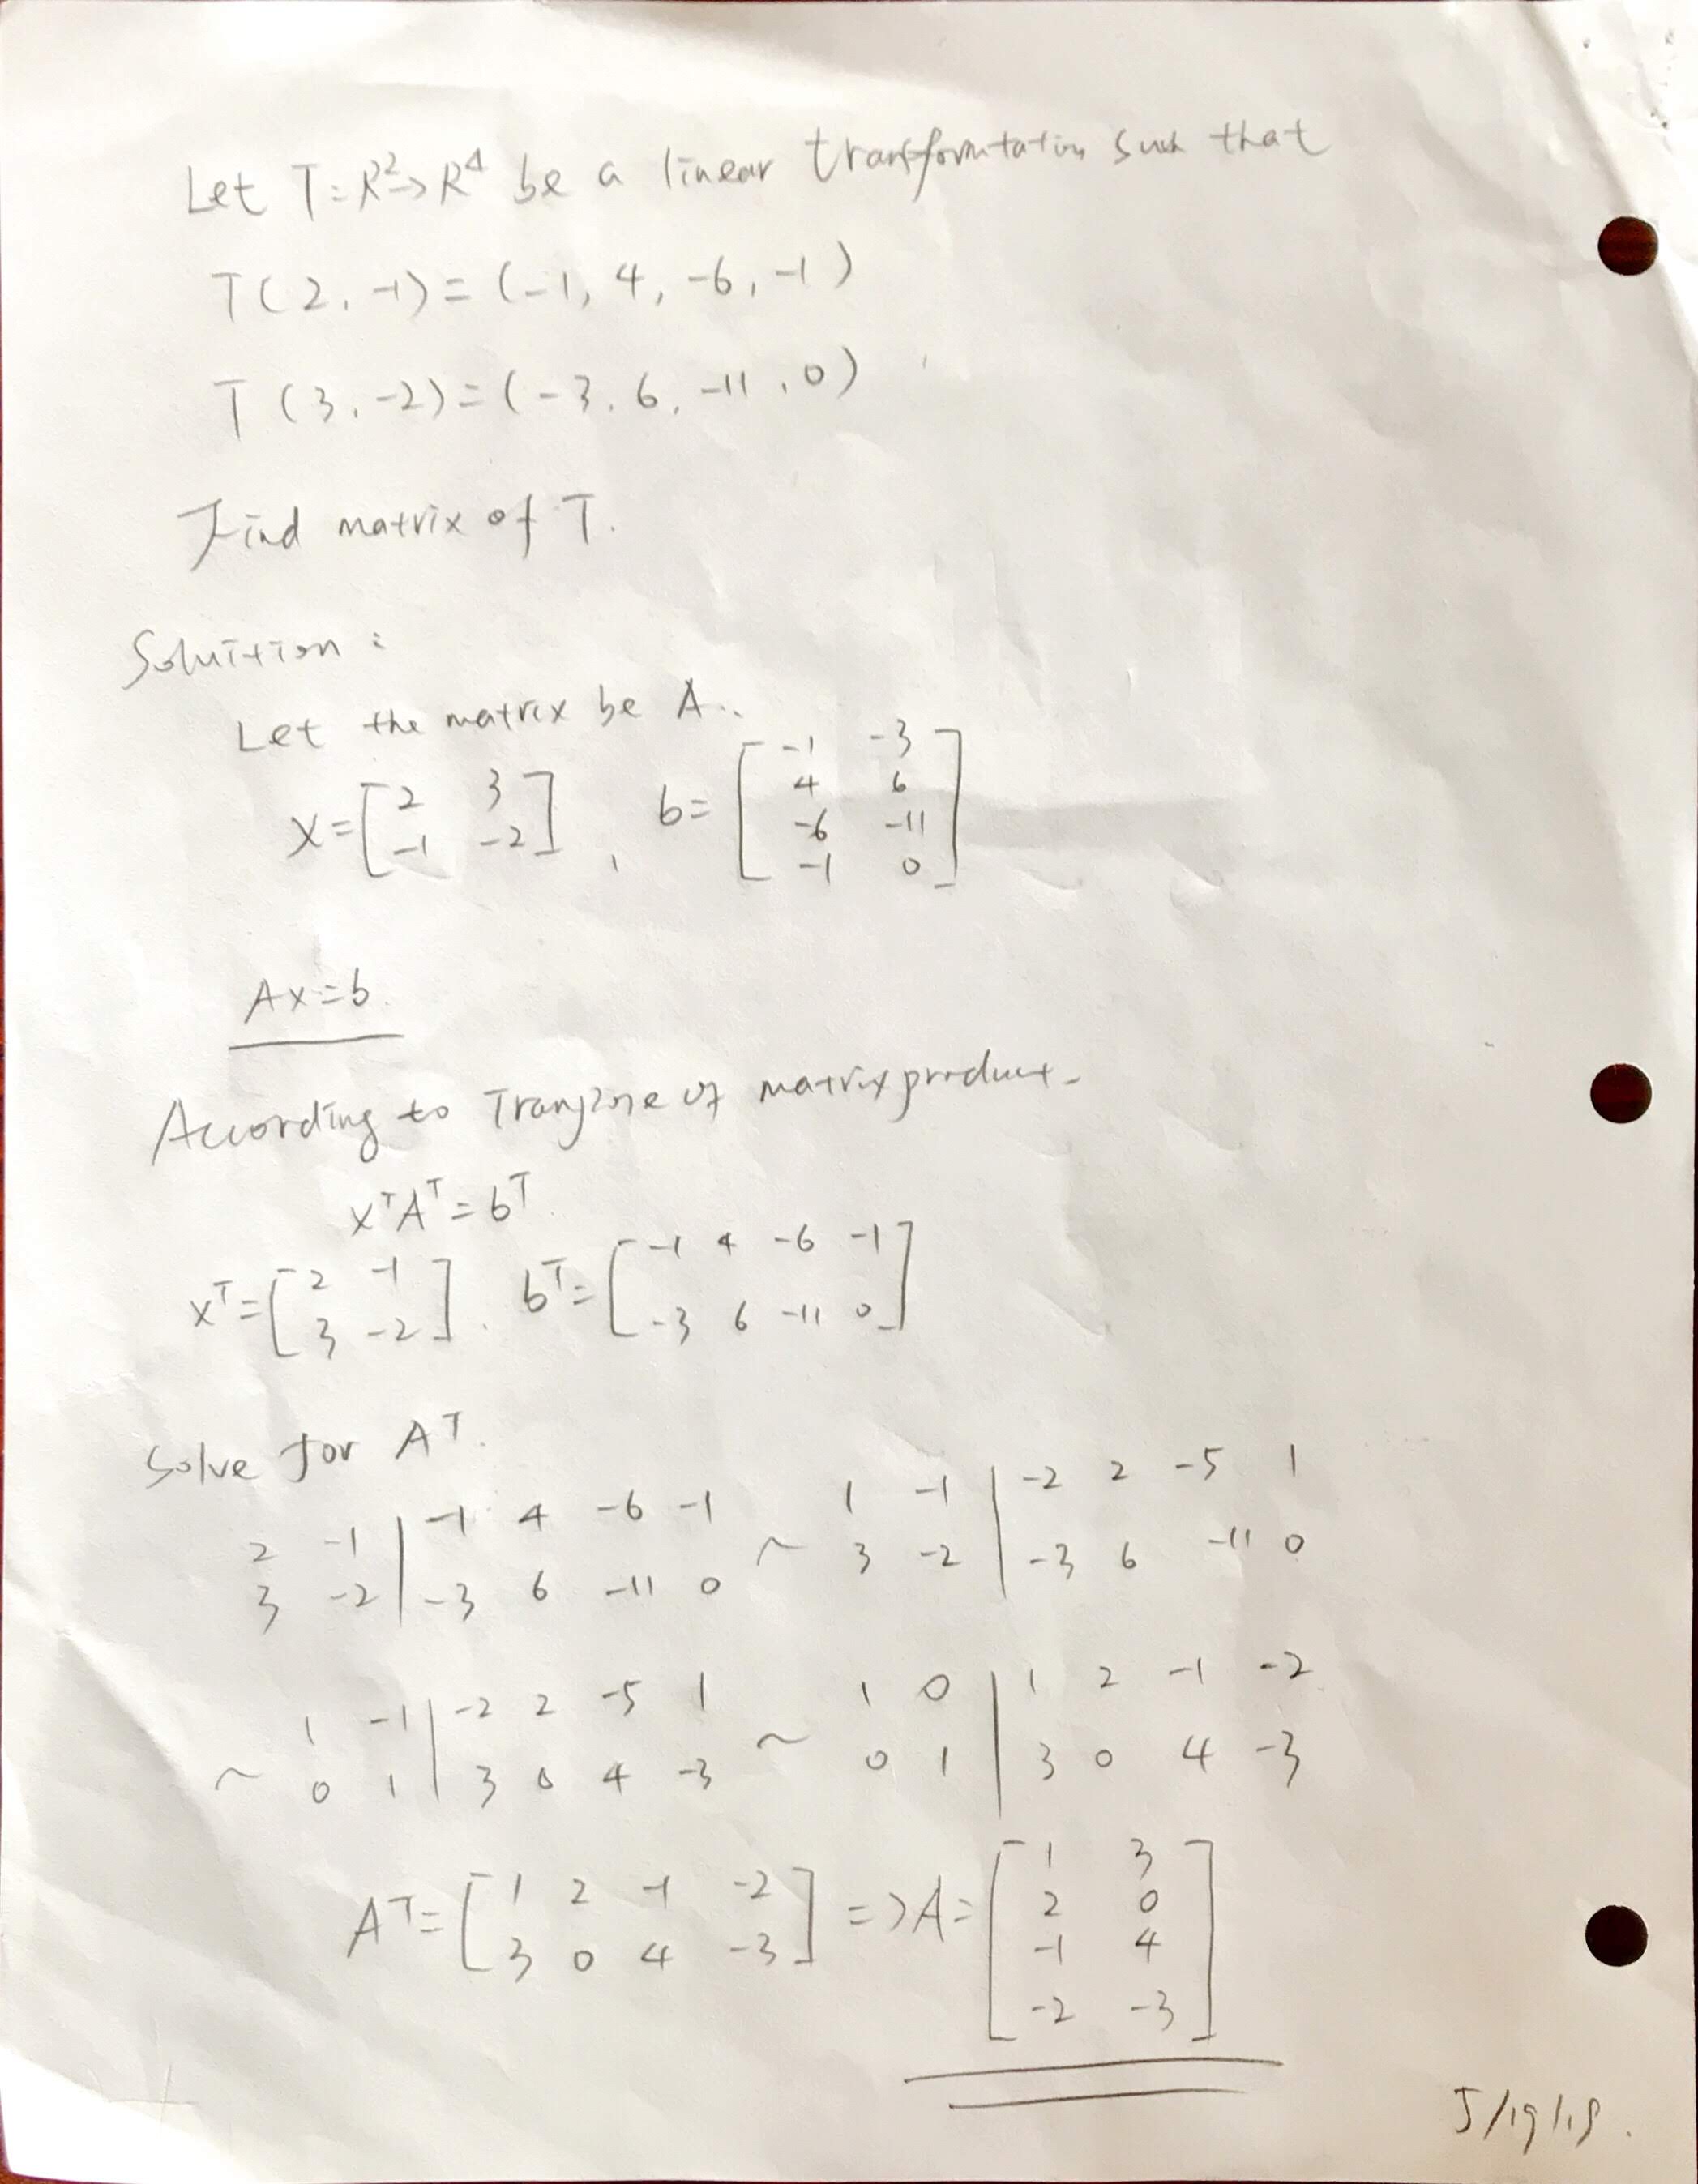 Let T: R²→R⁴ be a linear transformtation such that
T(2, -1) = (-1, 4, -6, -1)
T(3, -2) = (-3, 6, -11, 0)
Find matrix of T.
Soluition:
Let the matrix be A.
x = [2 3; -1 -2], b = [-1 -3; 4 6; -6 -11; -1 0]
Ax=b
According to of matrix product.
xᵀAᵀ = bᵀ
xᵀ = [2 -1; 3 -2], bᵀ = [-1 4 -6 -1; -3 6 -11 0]
Solve for Aᵀ.
2 -1 | -1 4 -6 -1 ~ 1 -1 | -2 2 -5 1
3 -2 | -3 6 -11 0 3 -2 | -3 6 -11 0
~ 1 -1 | -2 2 -5 1 ~ 1 0 | 1 2 -1 -2
0 1 | 3 0 4 -3 0 1 | 3 0 4 -3
Aᵀ = [1 2 -1 -2; 3 0 4 -3] => A = [1 3; 2 0; -1 4; -2 -3]